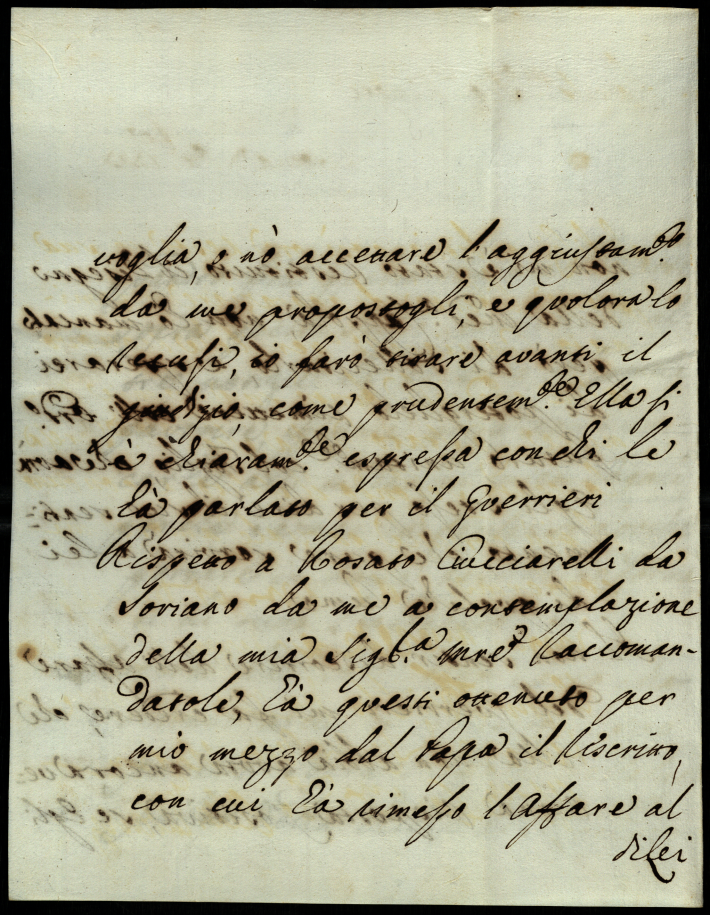 voglia, o nò accettare l'aggiustam.to
da me propostogli, e qualora lo
recusi, io farò tirare avanti il
giudizio, come prudentem.te Ella si
è chiaram.te espressa con chi le
hà parlato per il Guerrieri
Rispetto a Rosato Ciucciarelli da
Soriano da me a contemplazione
della mia Sig.ra Mre Raccoman-
datole, hà questi ottenuto per
mio mezzo dal Papa il Rescritto,
con cui hà rimesso l'Affare al
di Lei